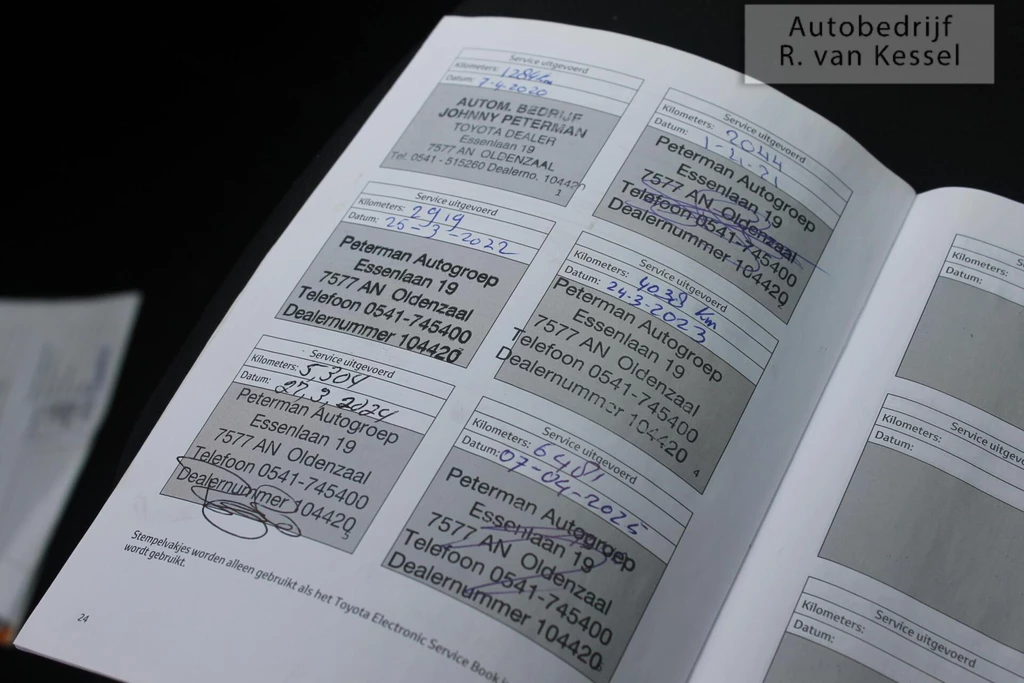 Autobedrijf
R. van Kessel
Service uitgevoerd
Kilometers: 1284 km
Datum: 7-4-2020
AUTOM. BEDRIJF
JOHNNY PETERMAN
TOYOTA DEALER
Essenlaan 19
7577 AN OLDENZAAL
Tel. 0541 - 515260 Dealerno. 104420
1
Service uitgevoerd
Kilometers: 2044
Datum: 1-21-21
Peterman Autogroep
Essenlaan 19
7577 AN Oldenzaal
Telefoon 0541-745400
Dealernummer 104420
Service uitgevoerd
Kilometers: 2919
Datum: 25-3-2022
Peterman Autogroep
Essenlaan 19
7577 AN Oldenzaal
Telefoon 0541-745400
Dealernummer 104420
Service uitgevoerd
Kilometers: 4039 km
Datum: 24.3-2023
Peterman Autogroep
Essenlaan 19
7577 AN Oldenzaal
Telefoon 0541-745400
Dealernummer 104420
4
Service uitgevoerd
Kilometers: 5,304
Datum: 27.3.2024
Peterman Autogroep
Essenlaan 19
7577 AN Oldenzaal
Telefoon 0541-745400
Dealernummer 104420
5
Service uitgevoerd
Kilometers: 6481
Datum: 07-04-2025
Peterman Autogroep
Essenlaan 19
7577 AN Oldenzaal
Telefoon 0541-745400
Dealernummer 104420
Stempelvakjes worden alleen gebruikt als het Toyota Electronic Service Book
wordt gebruikt.
24
Kilometers:
Datum:
Service uitgevoerd
Kilometers:
Datum:
Service uitgevoerd
Kilometers:
Datum: